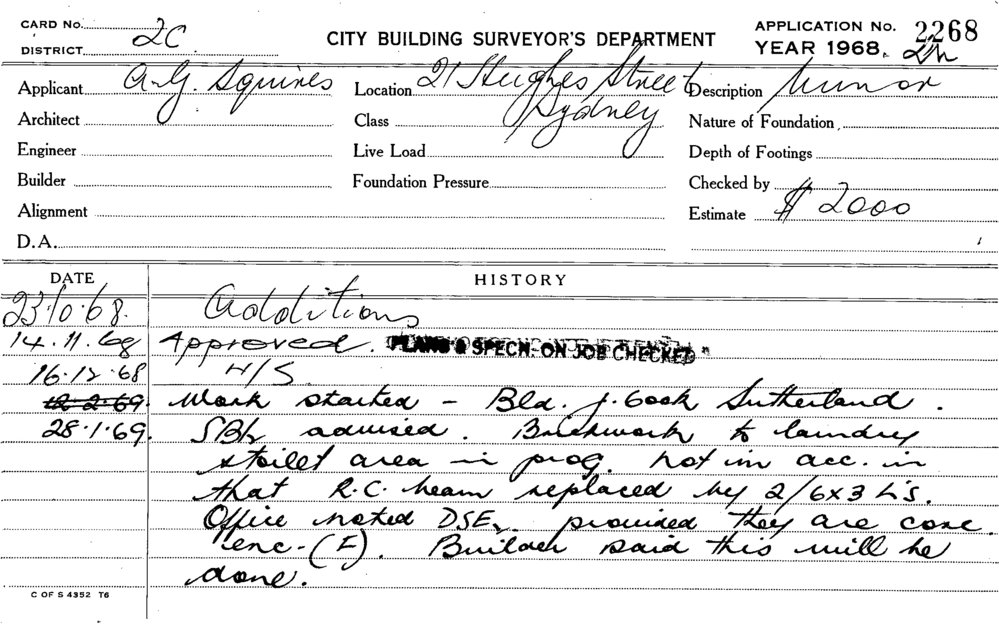 CARD No.
DISTRICT 2C
CITY BUILDING SURVEYOR'S DEPARTMENT
APPLICATION No. 2268
YEAR 1968.
Applicant A.G. Squires
Location 21 Hughes Street
Sydney
Description Minor
Architect
Class
Nature of Foundation
Engineer
Live Load
Depth of Footings
Builder
Foundation Pressure
Checked by
Alignment
Estimate $2000
D.A.
DATE HISTORY
23.10.68. Additions
14.11.68 Approved. PLANS & SPECN. ON JOB CHECKED
16.12.68 N/S.
12.2.69. Work started - Bld. J. Cook Sutherland.
28.1.69. advised. Brickwork to laundry
& toilet area in prog. not in acc. in
that R.C. beam replaced by 2/6x3 L's.
Office noted provided they are conc.
enc. (F). Builder said this will be
done.
C OF S 4352 T6